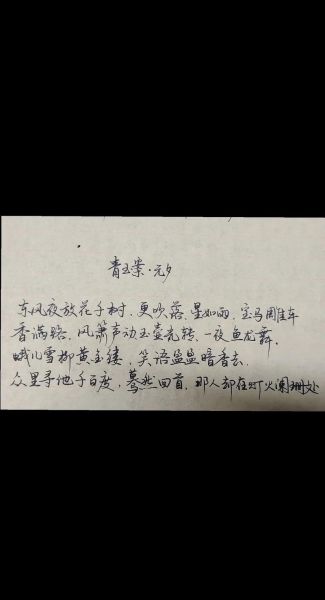 青玉案·元夕
东风夜放花千树，更吹落，星如雨，宝马雕车
香满路，风箫声动玉壶光转，一夜鱼龙舞，
蛾儿雪柳黄金缕，笑语盈盈暗香去，
众里寻他千百度，蓦然回首，那人却在灯火阑珊处